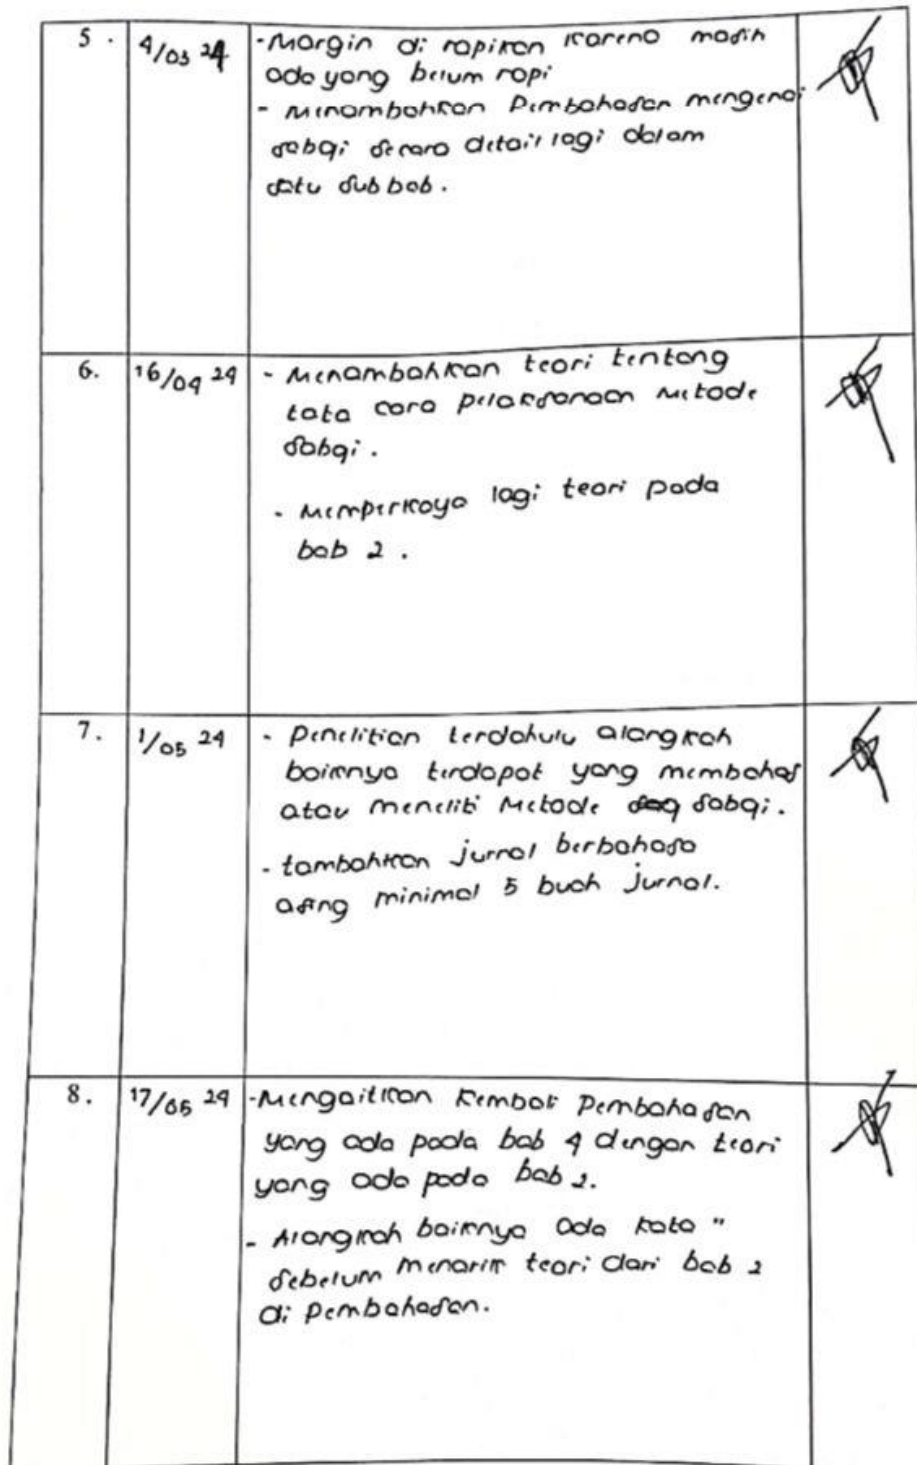 5. 4/03 24 - Margin di rapikan karena masih
ada yang belum rapi
- Menambahkan Pembahasan mengenai
sabqi secara detail lagi dalam
satu sub bab.
6. 16/04 24 - Menambahkan teori tentang
tata cara pelaksanaan Metode
sabqi.
- Memperkaya lagi teori pada
bab 2.
7. 1/05 24 - Penelitian terdahulu alangkah
baiknya terdapat yang membahas
atau meneliti Metode sabqi.
- tambahkan jurnal berbahasa
asing minimal 5 buah jurnal.
8. 17/05 24 - Mengaitkan kembali Pembahasan
yang ada pada bab 4 dengan teori
yang ada pada bab 2.
- Alangkah baiknya ada kata "
sebelum menarik teori dari bab 2
di Pembahasan.